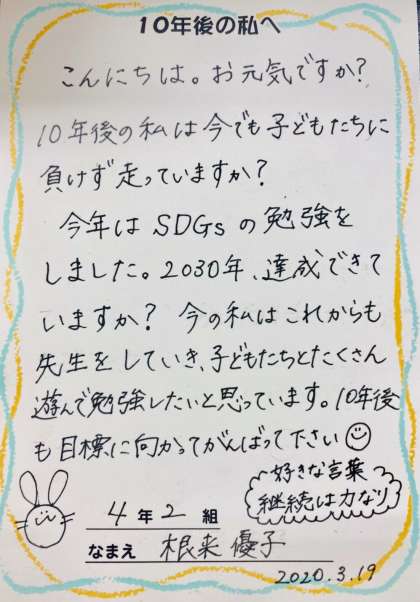 10年後の私へ
こんにちは。お元気ですか?
10年後の私は今でも子どもたちに
負けず走っていますか?
今年はSDGsの勉強を
しました。2030年、達成できて
いますか? 今の私はこれからも
先生をしていき、子どもたちとたくさん
遊んで勉強したいと思っています。10年後
も目標に向かってがんばって下さい☺
好きな言葉
継続は力なり
4年2組
なまえ 根来 優子
2020.3.19